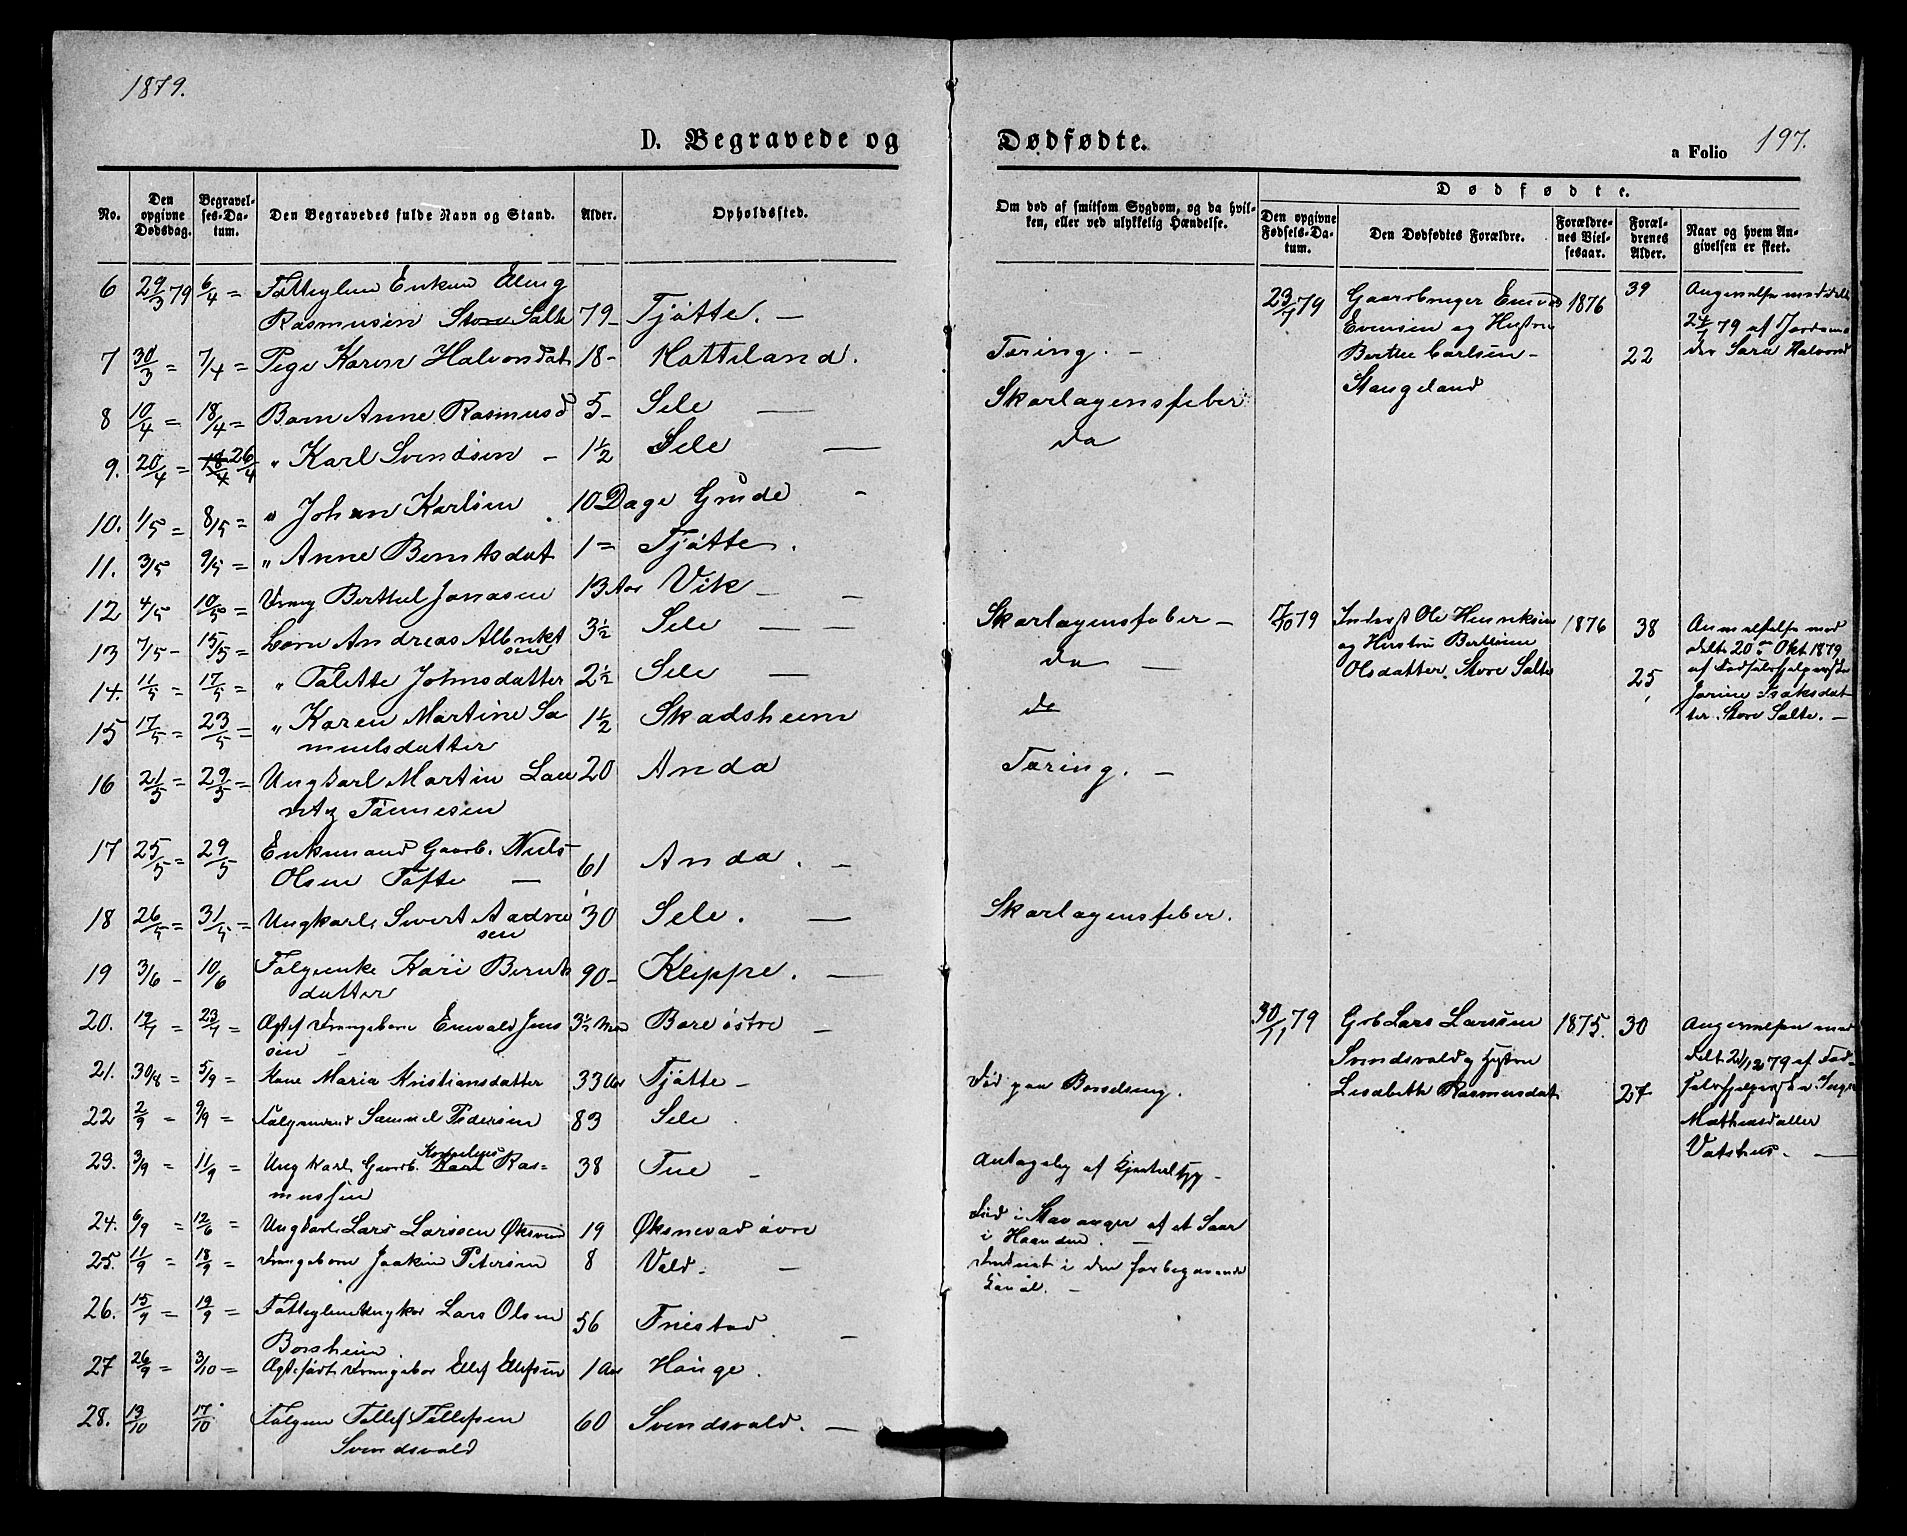 1879.
D. Begravede og Dødfødte.
a Folio 197.
No.
Den opgivne Dødsdag.
Begravelses-Datum.
Den Begravedes fulde Navn og Stand.
Alder.
Opholdssted.
Om død af smitsom Sygdom, og da hvilken, eller ved ulykkelig Hændelse.
Dødfødte.
Den opgivne Fødsels-Datum.
Den Dødfødtes Forældre.
Forældrenes Vielsesaar.
Forældrenes Alder.
Naar og hvem Angivelsen er skeet.
6 29/3 79 6/4 = Enken
Rasmusen Store Salte 79 - Tjøtte. -
7 30/3 = 7/4 = Pige Karen Halvorsdat 18 - Hatteland. Tæring. -
8 10/4 = 18/4 = Barn Anne Rasmusd 5 - Sele — Skarlagensfeber
9. 20/4 = 18/4 26/4 " Karl Svendsen - 1 1/2 Sele — da
10. 1/5 = 8/5 = " Johan Karlsen 10 Dage Grude -
11. 3/5 9/5 = " Anne Berntsdat 1 = Tjøtte.
12 4/5 10/5 = Berthel Jonasen 13 Aar Vik - Skarlagensfeber -
13 7/5 - 15/5 = Andreas Albrikt
sen 3 1/2 Sele — da —
14. 11/5 = 17/5 = " Talette Johnsdatter 2 1/2 Sele — de
15 17/5 = 23/5 = " Karen Martine Sa
muelsdatter 1 1/2 Skadsheim
16 21/5 = 29/5 = Ungkarl Martin Lau
ritz Tønnesen 20 Anda Tæring. -
17 25/5 = 29/5 Enkemand Gaardb. Niels
Olsen Tofte — 61 Anda. -
18 26/5 = 31/5 = Ungkarl Sivert Aadne
sen 30 Sele. — Skarlagensfeber.
19 3/6 - 10/6 Kari Bernts
datter 90 - Kleppe. —
20. 19/7 = 23/7 = Enevald Jens
sen 3 1/2 Bore østre -
21. 30/8 = 5/9 = Kone Maria Kristiansdatter 33 Aar Tjøtte - Død paa Barselseng.
22 2/9 = 9/9 = Samuel Pedersen 83 Sele
23. 3/9 = 11/9 = Ung karl Gaardb. Kornelius Karl Ras=
mussen 38 Tue - Antagelig af
24. 6/9 = 12/6 = Ungkarl Lars Larssen 19 Øksnevad øvre Død i Stavanger af et Saar
i Haanden. —
25. 11/9 = 18/9 = Joakim Petersen 8 Vold. - Druknet i den
Kanal.
26. 15/9 = 19/9 = Lars Olsen
Borsheim 56 Friestad. -
27 26/9 = 3/10 = Ellef Ellefsen 1 Aar Hauge.
28. 13/10 17/10 Tollef Tollefsen
Svendsvold 60 Svendsvold. -
23/7 79 Gaardbruger
Evensen og Hustru
Berthe Carlsen -
Stangeland 1876 39 22
Angivelse meddelt
24/7 79 af Jordemo
der Sara Halvorsd
Inderst Ole Henriksen
og Hustru
Olsdatter. Store Salte 1876 38 25
Anmeldelse med
delt 20 Okt 1879
af
Jorine Isaksdat
ter. Store Salte. -
30/11 79 Gb Lars Larssen
Svendsvold og Hustru
Lisabeth Rasmusdat 1875. 30 27
Angivelsen med
delt 2/12 79 af Fød=
Mathiasdatter
Vatshus. -